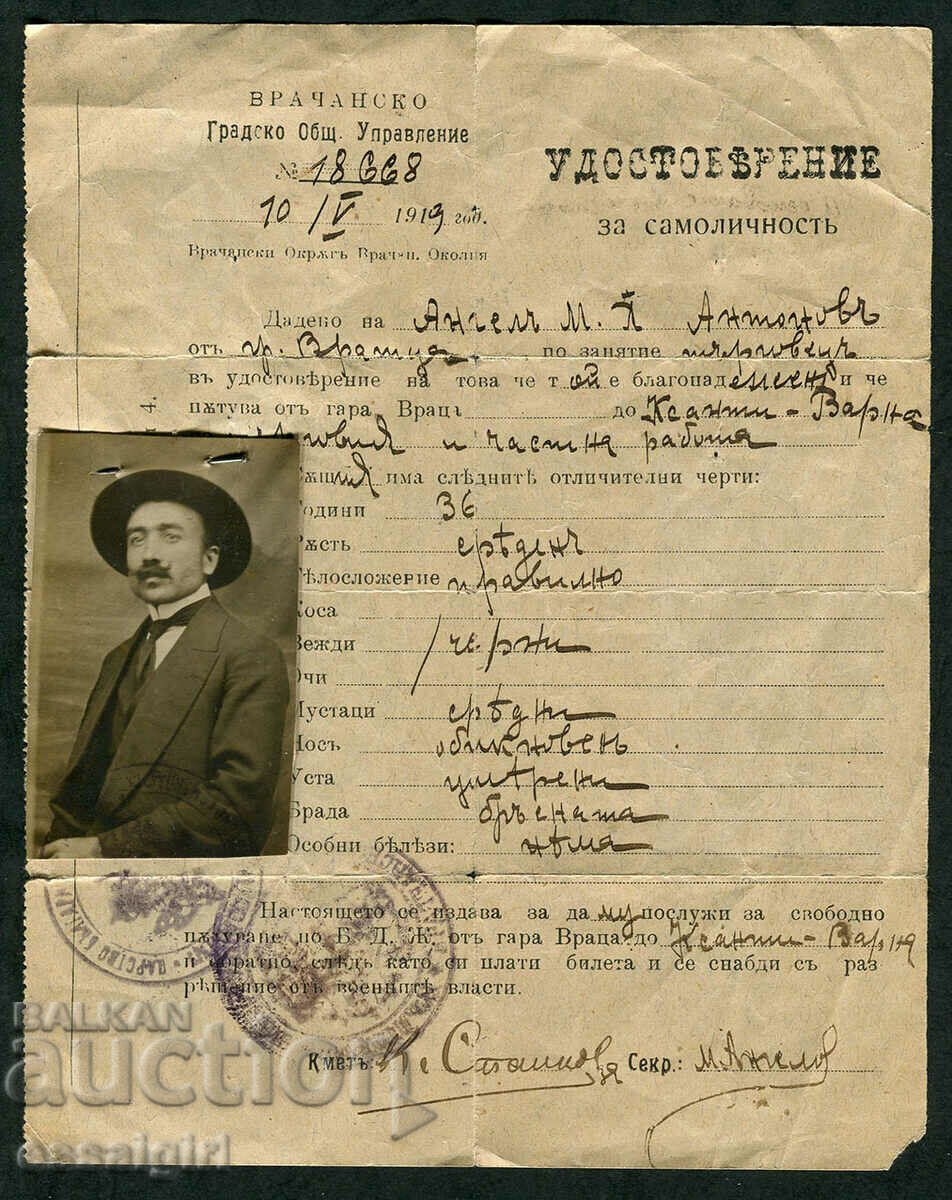 ВРАЧАНСКО
Градско Общ. Управление
№ 18668
10/V 1919 год.
Врачански Окрѫгъ Врач-н. Околия
УДОСТОВѢРЕНИЕ
за самоличность
Дадено на Ангелъ М. П. Антоновъ
отъ гр. Вратца, по занятие търговецъ
въ удостовѣрение на това че т ой е благонад еженъ и че
пѫтува отъ гара Враца до Ксанти - Варна
и частна работа
има слѣднитѣ отличителни черти:
Години 36
Рѫсть срѣденъ
Тѣлосложение правилно
Коса
Вежди черни
Очи
Мустаци срѣдни
Носъ обикновенъ
Уста умѣрени
Брада бръсната
Особни бѣлѣзи: нѣма
Настоящето се издава за да му послужи за свободно
пѫтуване по Б. Д. Ж. отъ гара Враца до Ксанти - Варна
и обратно, слѣдъ като си плати билета и се снабди съ раз
рѣшение отъ военнитѣ власти.
Кметъ: Секр.: М Ангелов
BALKAN
auction
essaigirl